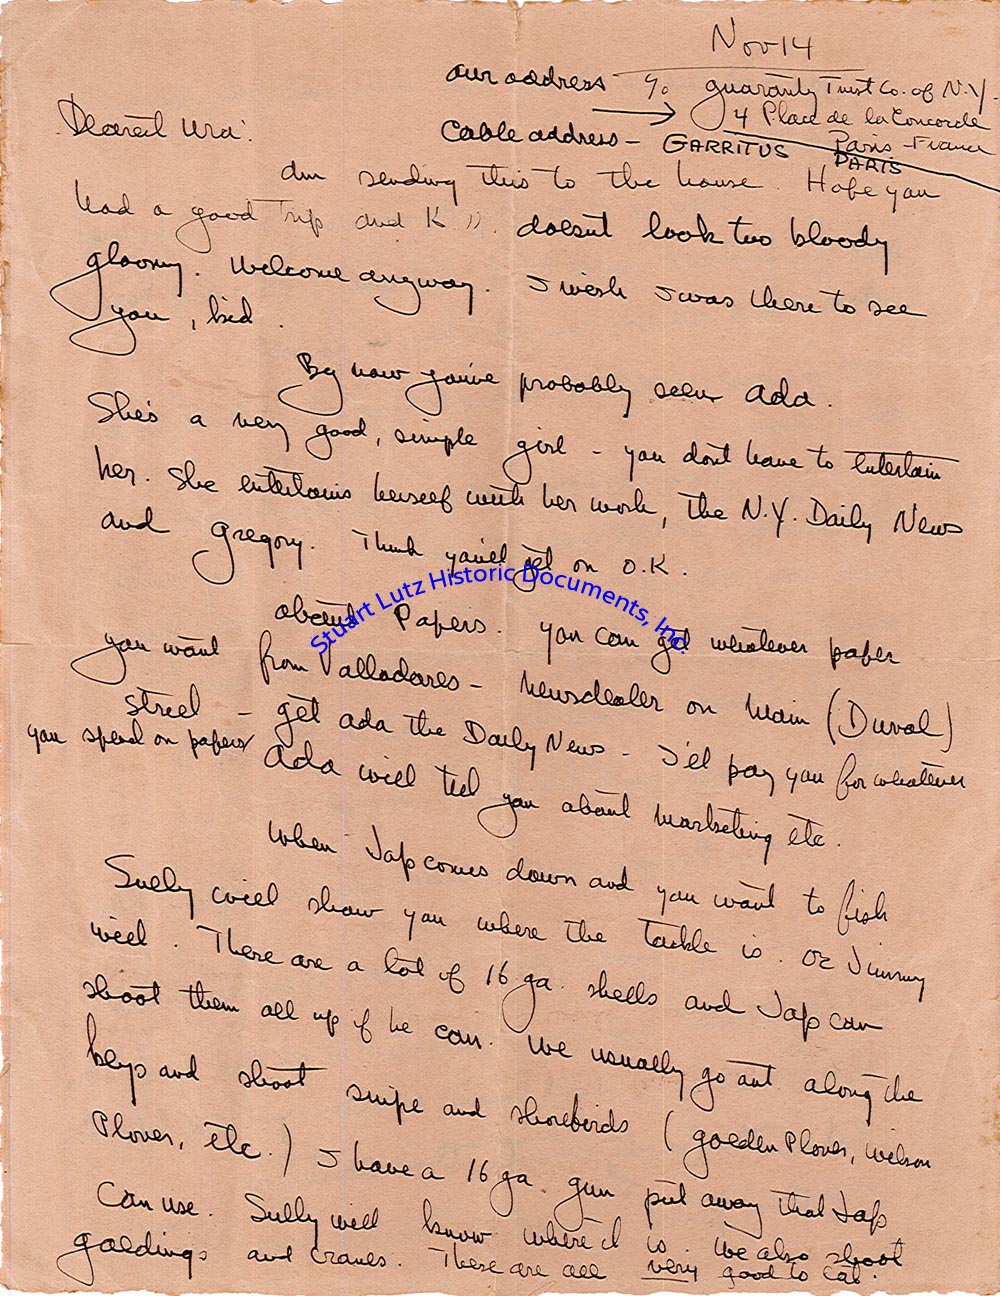 Nov 14
our address c/o Guaranty Trust Co. of N.Y.
4 Place de la Concorde
Paris - France
Dearest Ura:
Cable address - GARRITUS PARIS
Am sending this to the house. Hope you
had a good trip and K W. doesnt look too bloody
gloomy. Welcome anyway. I wish I was there to see
you, kid.
By now youve probably seen Ada.
She's a very good, simple girl - you dont have to entertain
her. She entertains herself with her work, the N.Y. Daily News
and Gregory. Think you'll get on O.K.
Stuart Lutz Historic Documents, Inc.
About Papers. You can get whatever paper
you want from Valladares - Newsdealer on Main (Duval)
street - get Ada the Daily News - I'll pay you for whatever
you spend on papers
Ada will tell you about marketing etc.
When Jap comes down and you want to fish
Sully will show you where the tackle is. Or Jimmy
will. There are a lot of 16 ga. shells and Jap can
shoot them all up if he can. We usually go out along the
keys and shoot snipe and shorebirds (golden Plover, Wilson
Plover, etc.) I have a 16 ga gun put away that Jap
can use. Sully will know where it is. We also shoot
goldings and cranes. These are all very good to eat.